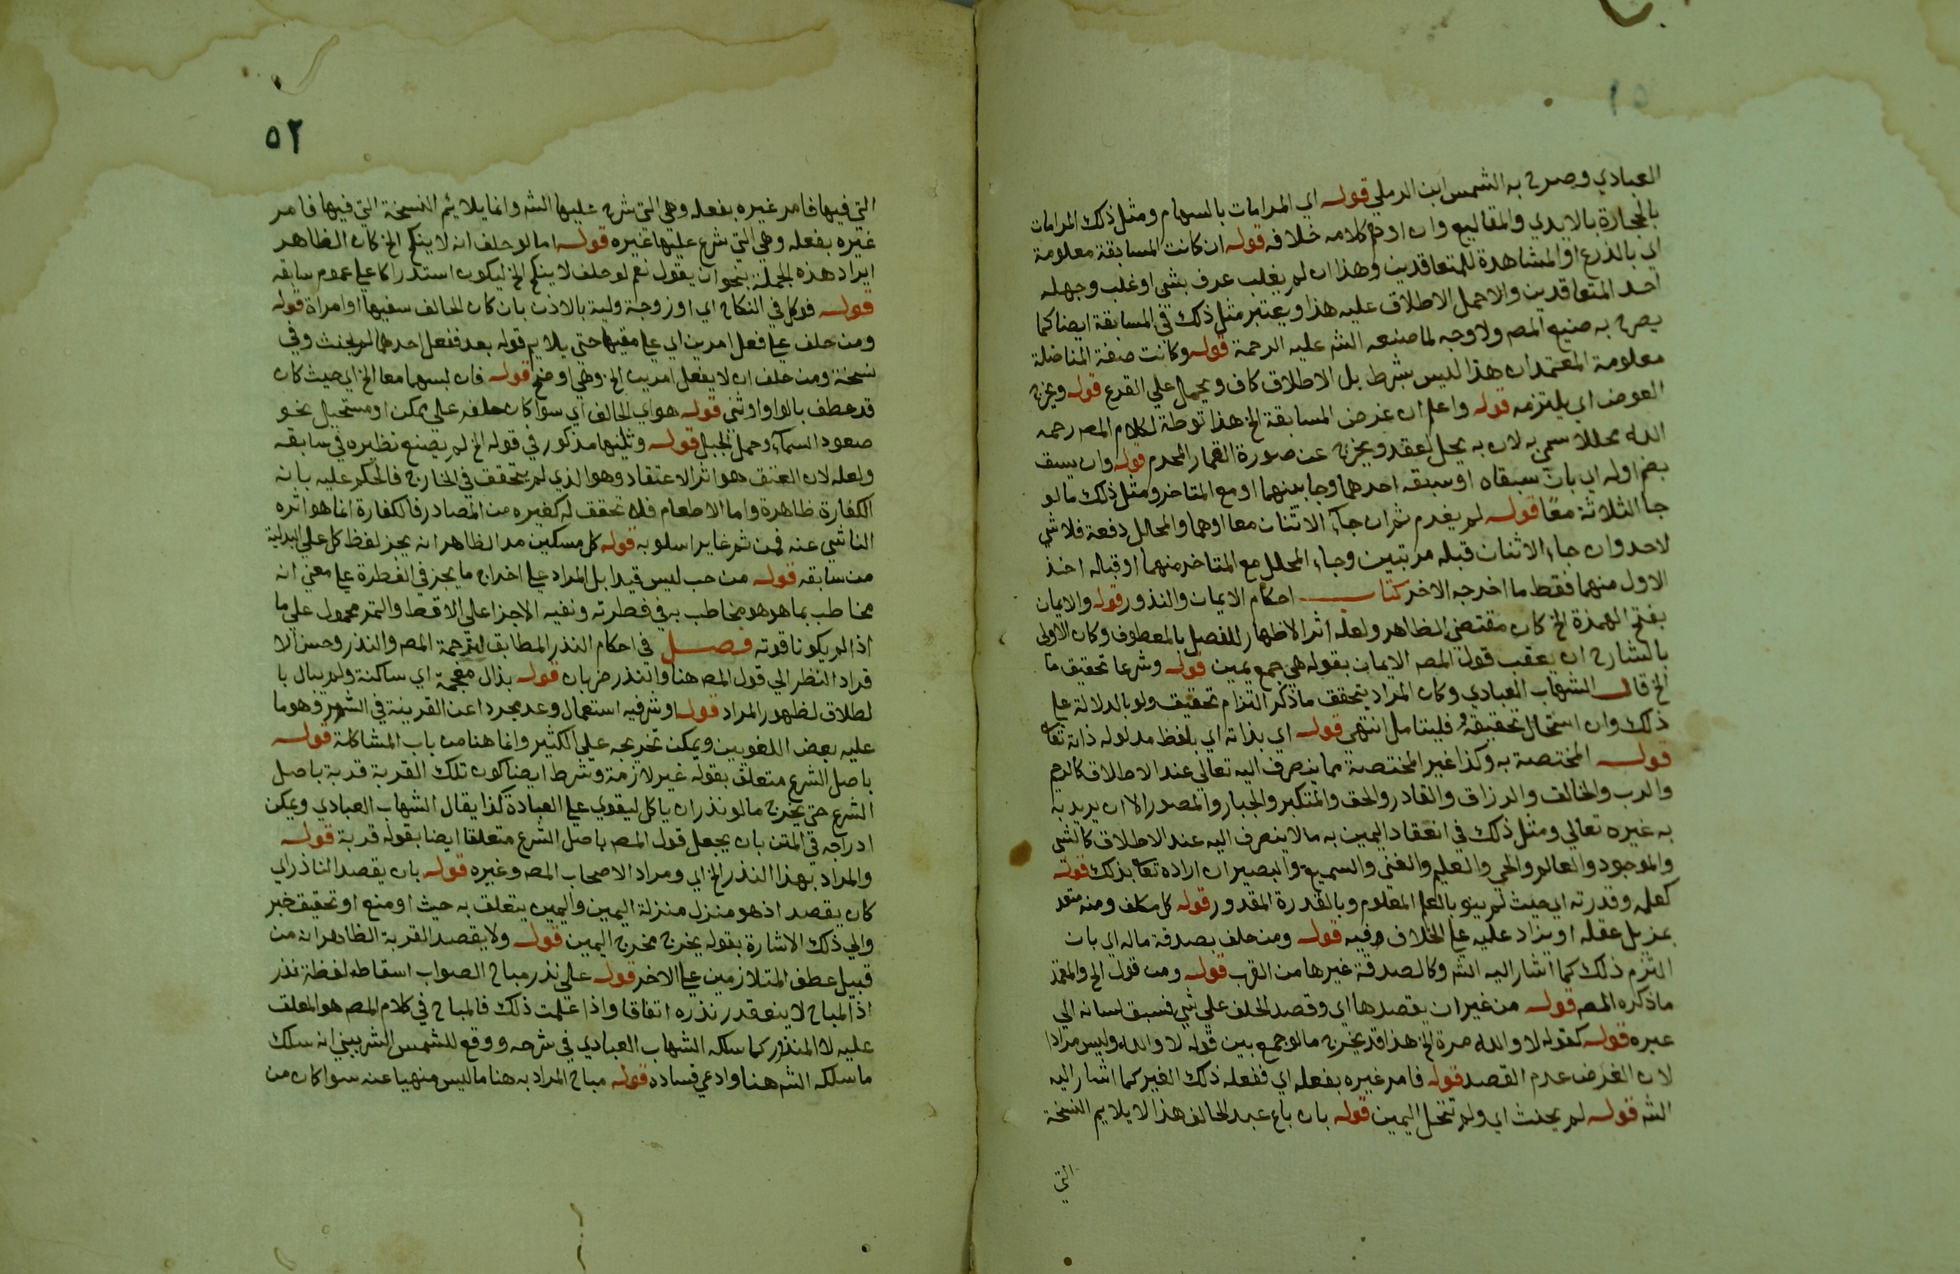 العبادي وصرح به الشمس ابن الرملي قوله اي المرامات بالسهام ومثل ذلك المرامات
بالحجارة بالايدي والمقاليع وان اوهم كلامه خلافه قوله ان كانت المسابقة معلومة
اي بالذرع او المشاهدة للمتعاقدين وهذا ان لم يغلب عرف بشي او غلب وجهله
احد المتعاقدين والاحمل الاطلاق عليه هذا ويعتبر مثل ذلك في المسابقة ايضا كما
يصرح به صنيع المص ولا وجه لما صنعه الشم عليه الرحمة قوله وكانت صفة المناضلة
معلومة المعتمدان هذا ليس بشرط بل الاطلاق كاف ويحمل علي القرع قوله ويخرج
العوض اي يلتزمه قوله واعلم ان غرض المسابقة الخ هذا توطئة لكلام المص رحمه
الله محللا سمي به لان به يحل العقد ويخرج عن صورة القمار المحرم قوله وان يسبق
بضم اوله اي بان سبقاه او سبقه احدهما وجا بينهما او مع المتاخر ومثل ذلك ما لو
جا الثلاثة معًا قوله لم يغرم شران جآء الاثنان معا اوهما والمحلل دفعة فلا شي
لاحد وان جاء الاثنان قبله مرتبين وجاء المحلل مع المتاخر منهما او قباله اخذ
الاول منهما فقط ما اخرجه الاخر كتاب احكام الايمان والنذور قوله والايمان
بفتح الهمزة الخ كان مقتضي الظاهر ولعله اثر الاظهار للفصل بالمعطوف وكان الاولى
بالشارح ان يعقب قول المص الايمان بقوله هي جمع يمين قوله وشرعا تحقيق ما
الخ قال الشهاب العبادي وكان المراد بتحقق ما ذكر التزام تحقيقه ولو بالدلالة علي
ذلك وان استحال تحقيقه فليتامل انتهى قوله اي بذاته اي بلفظ مدلوله ذاته تعا
قوله المختصة به وكذا غير المختصة مما ينصرف اليه تعالي عند الاطلاق كالرحيم
والرب والخالق والرزاق والقادر والحق والمتكبر والجبار والمصدر الا ان يريد به
به غيره تعالي ومثل ذلك في انعقاد اليمين به ما لا ينصرف اليه عند الاطلاق كالشي
والموجود والعالم والحي والعليم والغني والسميع والبصير ان اراده تعا بذلك قوله
كعلمه وقدرته اي حيث لم ينو بالعلم المعلوم وبالقدرة المقدور قوله كل مكلف ومنه متعد
بمزيل عقله او يزاد عليه علي الخلاف فيه قوله ومن حلف بصدقة ماله اي بان
التزم ذلك كما اشار اليه الشم وكالصدقة غيرها من القرب قوله ومن قول الخ والمعتمد
ما ذكره المص قوله من غير ان يقصدها اي وقصد الحلف علي شي فسبق لسانه الي
غيره قوله كقوله لا والله مرة الخ هذا قد يخرج ما لو جمع بين قوله لا والله وليس مرادا
لان الغرض عدم القصد قوله فامر غيره بفعله اي ففعله ذلك الغير كما اشار اليه
الشم قوله لم يحنث اي ولم تنحل اليمين قوله بان باع عبد الحالف هذا لا يلايم النسخة
التي
٥٢
التي فيها فامر غيره بفعله وهي التي شرح عليها الشم وانما يلايم النسخة التي فيها فامر
غيره بفعله وهي التي شرع عليها غيره قوله اما لو حلف انه لا ينكح الخ كان الظاهر
ايراد هذه الجملة بنحو ان يقول نعم لو حلف لا ينكح الخ ليكون استدراكا علي عموم سابقه
قوله فوكل في النكاح اي او زوجة وليه بالاذن بان كان الحالف سفيها او امراة قوله
ومن حلف علي فعل امرين اي علي مفيهما حتي يلايم قوله بعد ففعل احدهما لم يحنث وفي
نسخة ومن حلف ان لا يفعل امرين الخ وهي اوضح قوله فان لبسهما معا الخ اي حيث كان
قد عطف بالواو او ثنى قوله هو اي الحالف اي سواء كان حلفه علي ممكن او مستحيل نحو
صعود السمآء وحمل الجبل قوله وثلثها مذكور في قوله الخ لم يصنع نظيره في سابقه
ولعله لان العتق هو اثر الاعتقاد وهو الذي لم يتحقق في الخارج فالحكم عليه بانه
الكفارة ظاهرة واما الاطعام فلا تحقق له كغيره من المصادر فالكفارة انما هو اثره
الناشي عنه فمن ثم غاير اسلوبه قوله كل مسكين مد الظاهر انه يجز لفظ كل علي البدلية
من سابقه قوله من حب ليس قيدا بل المراد علي اخراج ما يجز في الفطرة علي معني انه
مخاطب بما هو هو مخاطب به في فطرته ونفيه الاجزا علي الاقط والتمر محمول علي ما
اذا لم يكونا قوته فصل في احكام النذر المطابق لترجمة المص والنذر وحسن الا
فراد النظر الي قول المص هنا والنذر ضربان قوله بذال معجمة اي ساكنة ولم يبال با
لطلاق لظهور المراد قوله او شرفيه استعمال وعد مجرداعن القرينة في الشر وهو ما
عليه بعض اللغويين ويمكن تخريجه علي الكثير وانما هنا من باب المشاكلة قوله
باصل الشرع متعلق بقوله غير لازمة وشرط ايضا كون تلك القربة قربة باصل
الشرع حتي يخرج ما لو نذر ان ياكل ليقوي علي العبادة كذا يقال الشهاب العبادي ويمكن
ادراجه في المتن بان يجعل قول المص باصل الشرع متعلقا ايضا بقوله قربة قوله
والمراد بهذا النذر الخ اي ومراد الاصحاب المص وغيره قوله بان يقصد الناذر اي
كان يقصد اذ هو منزل منزلة اليمين واليمين يتعلق به حيث او منع او تحقيق خبر
والي ذلك الاشارة بقوله يخرج مخرج اليمين قوله ولا يقصد القربة الظاهر انه من
قبيل عطف المتلازمين علي الاخر قوله علي نذر مباح الصواب اسقاط لفظة نذر
اذ المباح لا ينعقد نذره اتفاقا واذا علمت ذلك فالمباح في كلام المص هو المعلق
عليه لا المنذور كما سلكه الشهاب العبادي في شرحه ووقع للشمس الشربيني انه سلك
ما سلكه الشم هنا وادعي فساده قوله مباح المراد به هنا ما ليس منهيا عنه سوا كان من